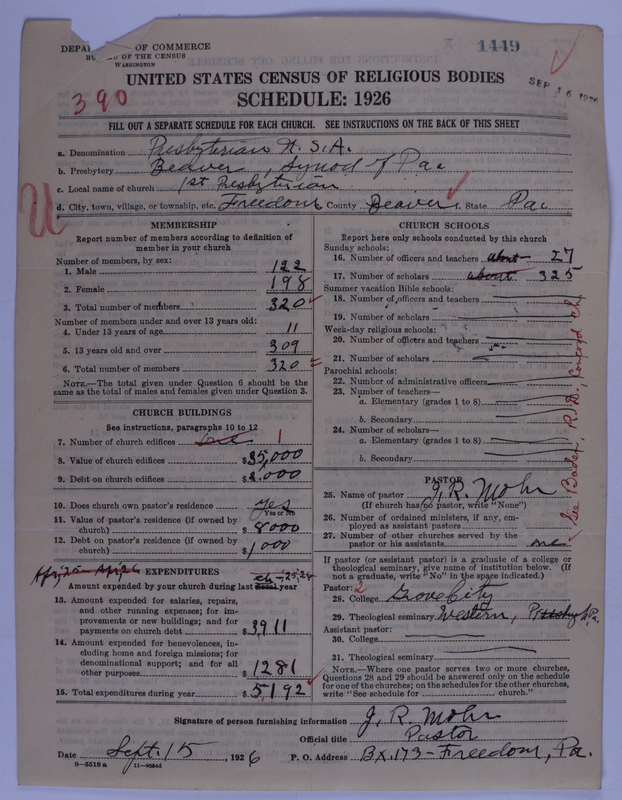 DEPA OF COMMERCE
BU OF THE CENSUS
WASHINGTON
1449
SEP 16 1926
390
UNITED STATES CENSUS OF RELIGIOUS BODIES
SCHEDULE: 1926
FILL OUT A SEPARATE SCHEDULE FOR EACH CHURCH. SEE INSTRUCTIONS ON THE BACK OF THIS SHEET
a. Denomination Presbyterian U.S.A.
b. Presbytery Beaver, Synod of Pa.
c. Local name of church 1st Presbyterian
d. City, town, village, or township, etc. Freedom County Beaver. State Pa.
U
MEMBERSHIP
Report number of members according to definition of
member in your church
Number of members, by sex:
1. Male 122
2. Female 198
3. Total number of members 320
Number of members under and over 13 years old:
4. Under 13 years of age 11
5. 13 years old and over 309
6. Total number of members 320
NOTE.—The total given under Question 6 should be the
same as the total of males and females given under Question 3.
CHURCH BUILDINGS
See instructions, paragraphs 10 to 12
7. Number of church edifices one 1
8. Value of church edifices $35,000
9. Debt on church edifices $2,000
10. Does church own pastor's residence yes
Yes or No
11. Value of pastor's residence (if owned by
church) $8000
12. Debt on pastor's residence (if owned by
church) $1000
Apr, 25 - Apr, 26
EXPENDITURES
Amount expended by your church during last fiscal year
13. Amount expended for salaries, repairs,
and other running expenses; for im-
provements or new buildings; and for
payments on church debt $3911
14. Amount expended for benevolences, in-
cluding home and foreign missions; for
denominational support; and for all
other purposes $1281
15. Total expenditures during year $5192
CHURCH SCHOOLS
Report here only schools conducted by this church
Sunday schools:
16. Number of officers and teachers about 27
17. Number of scholars about 325
Summer vacation Bible schools:
18. Number of officers and teachers
19. Number of scholars
Week-day religious schools:
20. Number of officers and teachers
21. Number of scholars
Parochial schools:
22. Number of administrative officers
23. Number of teachers—
a. Elementary (grades 1 to 8)
b. Secondary
24. Number of scholars—
a. Elementary (grades 1 to 8)
b. Secondary
See Baden, R.D., Concord Ch.
PASTOR
25. Name of pastor J. R. Mohr
(If church has no pastor, write "None")
26. Number of ordained ministers, if any, em-
ployed as assistant pastors
27. Number of other churches served by the
pastor or his assistants one
If pastor (or assistant pastor) is a graduate of a college or
theological seminary, give name of institution below. (If
not a graduate, write "No" in the space indicated.)
Pastor: 2
28. College Grove City
29. Theological seminary Western, Pa.
Assistant pastor:
30. College
31. Theological seminary
NOTE.—Where one pastor serves two or more churches,
Questions 28 and 29 should be answered only on the schedule
for one of the churches; on the schedules for the other churches,
write "See schedule for church."
Signature of person furnishing information J. R. Mohr
Official title Pastor
Date Sept. 15, 1926 P. O. Address Bx. 173 - Freedom, Pa.
8—5518 a